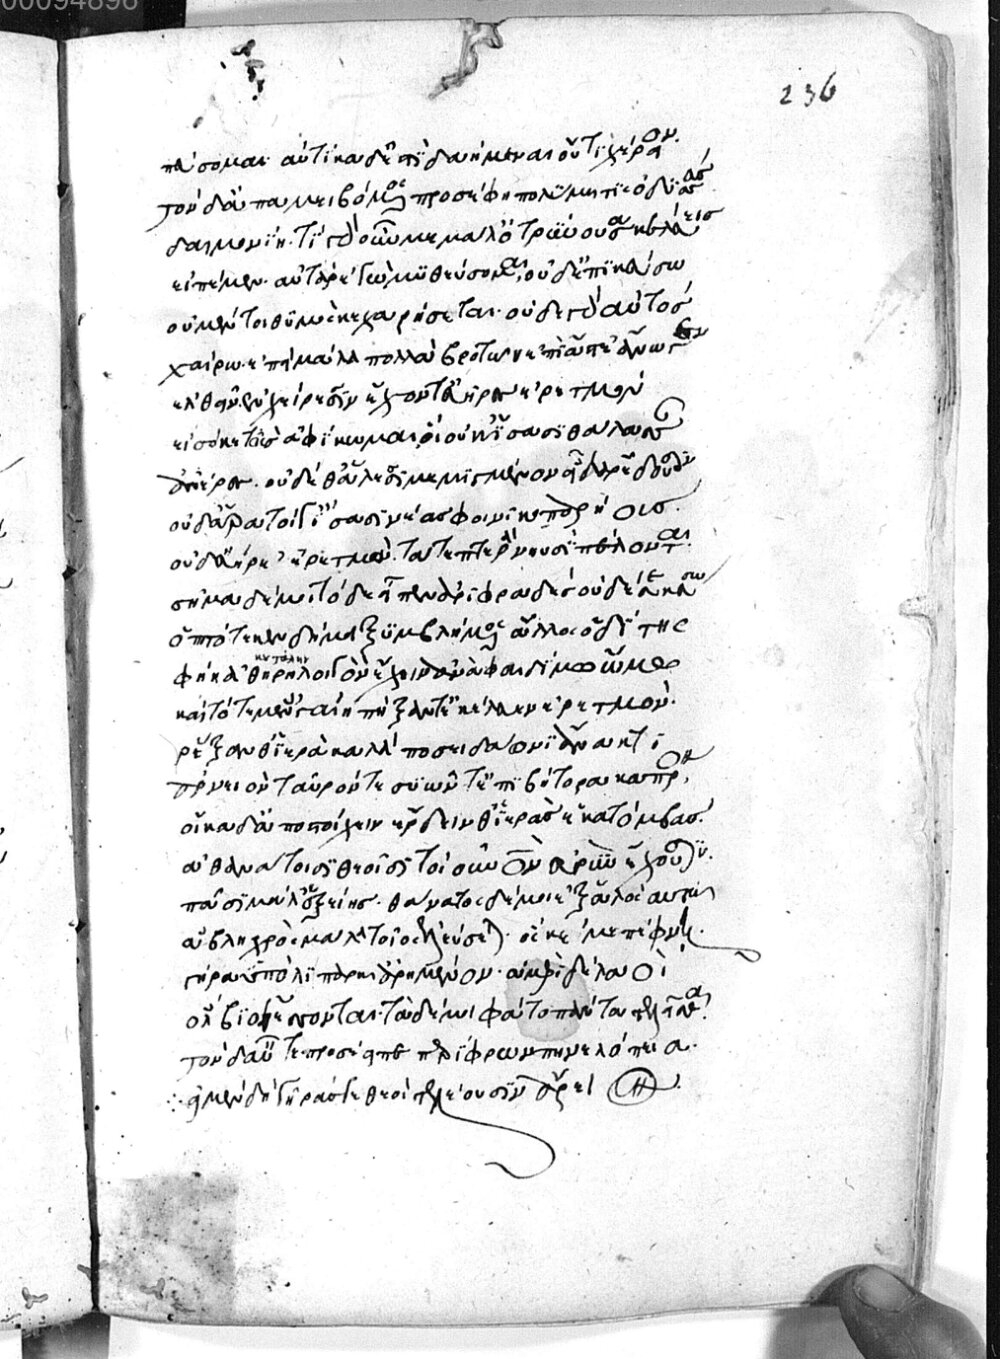 00094896
236
πεύσομαι· αὐτίκα δ' ἐπὶ δαήμεναι οὔτι χέρειον.
τὸν δ' ἀπαμειβόμενος προσέφη πολύμητις ὀδυσσεύς
δαιμονίη· τί τ' ἄρ' αὖ με μάλ' ὀτρύνουσα κελεύεις
εἰπέμεν· αὐτὰρ ἐγὼ μυθεύσομαι, οὐδ' ἐπικεύσω
οὐ μέν τοι θυμὸς κεχαρήσεται· οὐδὲ γὰρ αὐτὸς
χαίρω· ἐπεὶ μάλα πολλὰ βροτῶν ἐπὶ ἄστε' ἄνωγεν
ἐλθεῖν ἐν χείρεσσιν ἔχοντ' εὐῆρες ἐρετμόν
εἰσόκε τοὺς ἀφίκωμαι οἳ οὐκ ἴσασι θάλασσαν
ἀνέρες· οὐδέ θ' ἅλεσσι μεμιγμένον εἶδαρ ἔδουσιν
οὐδ' ἄρα τοὶ ἴσασι νέας φοινικοπαρῄους.
οὐδ' εὐήρε' ἐρετμά. τά τε πτερὰ νηυσὶ πέλονται.
σῆμα δέ μοι τόδ' ἔειπεν ἀριφραδὲς οὐδέ σε κεύσω
ὁππότε κεν δή μοι ξυμβλήμενος ἄλλος ὁδίτης
φήῃ ἀθηρηλοιγὸν ἔχειν ἀνὰ φαιδίμῳ ὤμῳ
καὶ τότε μ' ἐν γαίῃ πήξαντ' ἐκέλευεν ἐρετμόν.
ἔρξανθ' ἱερὰ καλὰ ποσειδάωνι ἄνακτι
ἀρνειὸν ταῦρόν τε συῶν τ' ἐπιβήτορα κάπρον,
οἴκαδ' ἀποστείχειν ἔρδειν θ' ἱερὰς ἑκατόμβας.
ἀθανάτοισι θεοῖσι τοὶ οὐρανὸν εὐρὺν ἔχουσιν.
πᾶσι μάλ' ἑξείης· θάνατος δέ μοι ἐξ ἁλὸς αὐτῷ
ἀβληχρὸς μάλα τοῖος ἐλεύσεται· ὅς κέ με πέφνῃ.
γήρᾳ ὕπο λιπαρῷ ἀρημένον· ἀμφὶ δὲ λαοὶ
ὄλβιοι ἔσσονται· τὰ δέ μοι φάτο πάντα τελεῖσθαι.
τὸν δ' αὖτε προσέειπε περίφρων πηνελόπεια.
εἰ μὲν δὴ γῆράς γε θεοὶ τελέουσιν ἄρειον